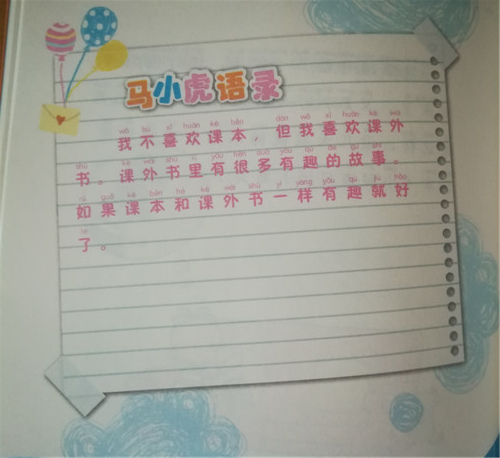 马小虎语录
wǒ bù xǐ huān kè běn dàn wǒ xǐ huān kè wài
我不喜欢课本，但我喜欢课外
shū kè wài shū lǐ yǒu hěn duō yǒu qù de gù shì
书。课外书里有很多有趣的故事。
rú guǒ kè běn hé kè wài shū yí yàng yǒu qù jiù hǎo
如果课本和课外书一样有趣就好
le
了。